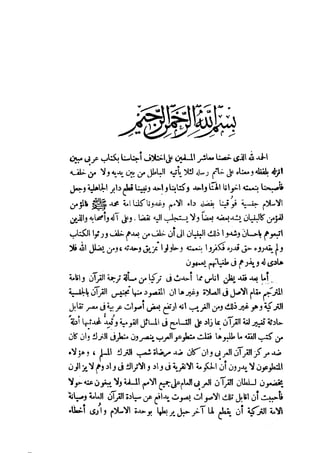 بسم الله الرحمن الرحيم
الحمد لله الذى خصنا معاشر المسلمين على اختلاف أجناسنا بكتاب عربى مبين
انزله بلفظه ومعناه على خاتم رسله لئلا يأتيه الباطل من بين يديه ولا من خلفه
فأصبحنا بنعمته اخوانا الهنا واحد وكتابنا واحد ونبينا قطع دابر الجاهلية وجعل
الاسلام جنسية فوقينا بفضله داء الامم وغدونا كلنا امة محمد ﷺ فالمؤمن
للمؤمن كالبنيان يشد بعضه بعضا ولا يستجلب اليه نقضا . وعلى آله وأصحابه والذين
اتبعوهم باحسان وشدوا ذلك البنيان الى أن خلف من بعدهم خلف ورثوا الكتاب
ولم يقدروه حق قدره فكفروا بنعمته وحاولوا تمزيق وحدته ، ومن يضلل الله فلا
هادى له ويذرهم فى طغيانهم يعمهون
أما بعد فقد يظن الناس مما أحدث فى تركيا من مسألة ترجمة القرآن واقامة
المترجم مقام الاصل فى الصلاة وغيرها ان المقصود منها تجنيس القرآن بالجنسية
التركية وهو غير ذلك ومن الغريب انه ارتفع بعض أصوات عربية فى مصر تقابل
حادثة تغيير لغة القرآن بما زاد على التسامح فى المسائل القومية وتؤيد لمحدثيها أدلة
من كتب الفقه ما طلبوها فقلت متطوعو العرب ينصرون متطرفى الترك وان كان
ضد مركز القرآن العربى وان كان ضد مرضاة شعب الترك المسلم ، وهؤلاء
المتطوعون لا يدرون أن الحكومة الانقرية فى واد والاتراك فى واد وهم لا يزالون
يخضعون لسلطان القرآن العربى العام على جميع الامم المسلمة ولا يبغون عنه حولا
فأحببت أن اقابل تلك الاصوات بصوت يدافع عن سيادة القرآن العامة وصيانة
الامة التركية أن يقطع لها آخر حبل يربطها بوحدة الاسلام وأرى أخطاء